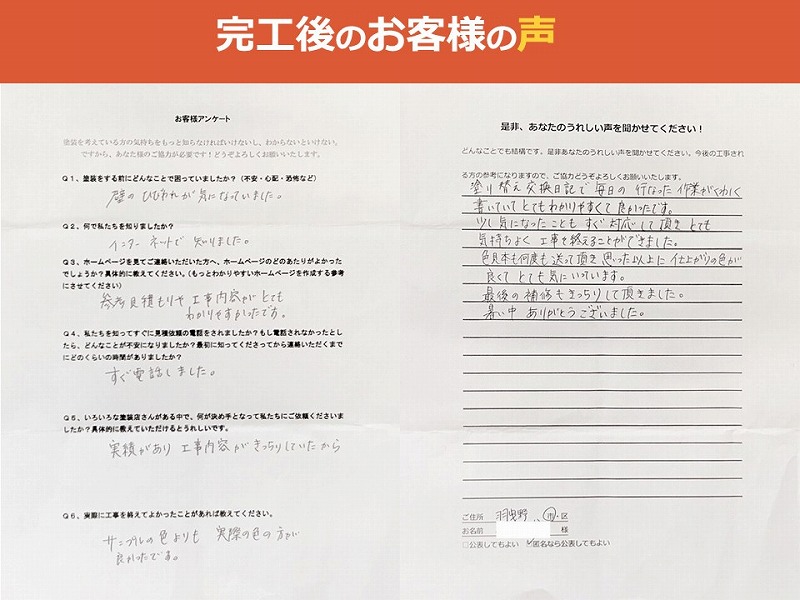 完工後のお客様の声
お客様アンケート
塗装を考えている方の気持ちをもっと知らなければいけないし、わからないといけない。
ですから、あなた様のご協力が必要です！どうぞよろしくお願いいたします。
Q1、塗装をする前にどんなことで困っていましたか？（不安・心配・恐怖など）
壁のひびわれが気になっていました。
Q2、何で私たちを知りましたか？
インターネットで知りました。
Q3、ホームページを見てご連絡いただいた方へ、ホームページのどのあたりがよかった
でしょうか？具体的に教えてください。（もっとわかりやすいホームページを作成する参考
にさせてください）
参考見積もりや工事内容がとても
わかりやすかったです。
Q4、私たちを知ってすぐに見積依頼の電話をされましたか？もし電話されなかったとし
たら、どんなことが不安になりましたか？最初に知ってくださってから連絡いただくまで
にどのくらいの時間がありましたか？
すぐ電話しました。
Q5、いろいろな塗装店さんがある中で、何が決め手となって私たちにご依頼くださいま
したか？具体的に教えていただけるとうれしいです。
実績があり工事内容がきっちりしていたから
Q6、実際に工事を終えてよかったことがあれば教えてください。
サンプルの色よりも 実際の色の方が
良かったです。
是非、あなたのうれしい声を聞かせてください！
どんなことでも結構です。是非あなたのうれしい声を聞かせてください。今後の工事され
る方の参考になりますので、ご協力どうぞよろしくお願いいたします。
塗り替え交換日記で毎日の行なった作業がくわしく
書いていてとてもわかりやすくて良かったです。
少し気になったこともすぐ対応して頂きとても
気持ちよく工事を終えることができました。
色見本も何度も送って頂き思った以上に仕上がりの色が
良くてとても気にいっています。
最後の補修もきっちりして頂きました。
暑い中 ありがとうございました。
ご住所 羽曳野 市・区
お名前 様
□公表してもよい ☑匿名なら公表してもよい